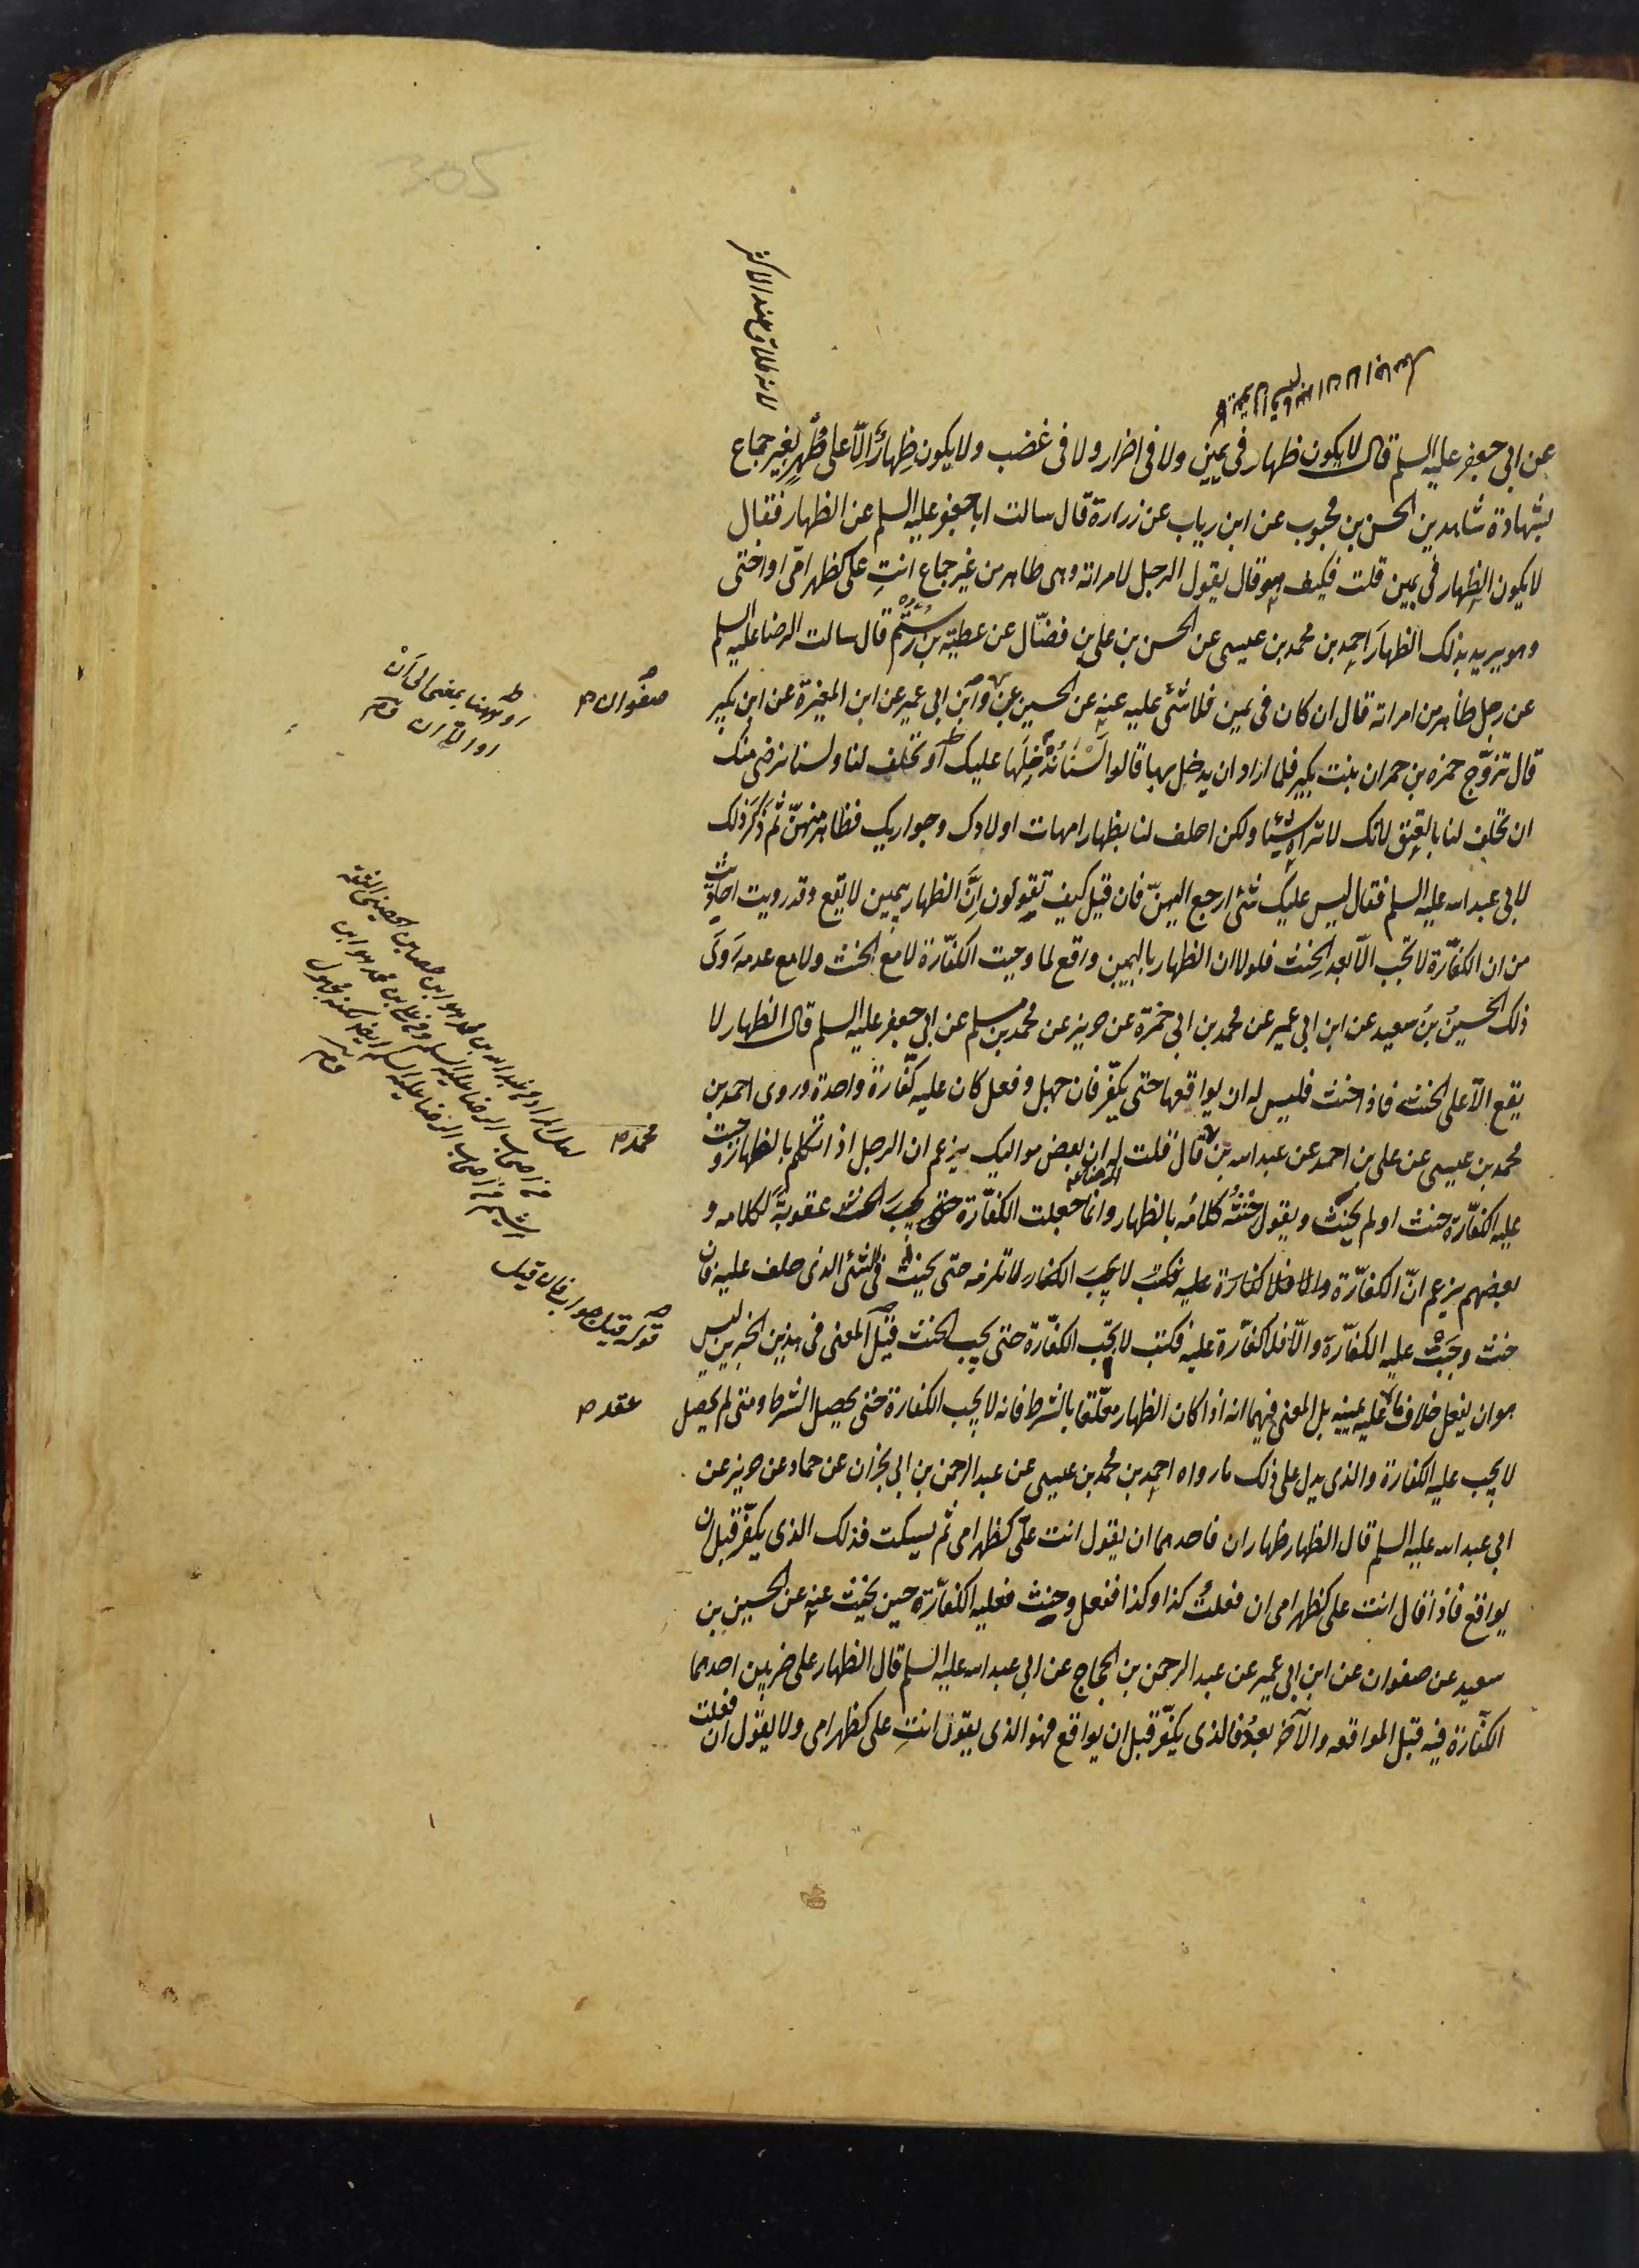 305
لانه طلاق عند الاكثر
عن ابى جعفر عليه السلم قال لا يكون ظهار فى يمين ولا فى اضرار ولا فى غضب ولا يكون ظِهارٌ الّا على طُهْرٍ بغير جماع
بشهادة شاهدين الحسن بن محبوب عن ابن رياب عن زرارة قال سالت ابا جعفر عليه السلم عن الظهار فقال
لا يكون الظهار فى يمين قلت فكيف هو قال يقول الرجل لامراته وهى طاهر من غير جماع انتِ علىّ كظهر امّى او اختى
وهو يريد بذلك الظهارَ احمد بن محمد بن عيسى عن الحسن بن على بن فضّال عن عطية بن رُسْتُم قال سالت الرضا عليه السلم
عن رجل ظاهر من امراته قال ان كان فى يمين فلا شئ عليه عنه عن الحسين عن وابن ابى عمير عن ابن المغيرة عن ابن بكير
صفوان صح
او ههنا بمعنى الى اَنْ
او الّا ان
قال تزوّج حمزه بن حمران بنت بكير فلما اراد ان يدخل بها قالوا لَسْنَا نُدْخِلُها عليك او تحلف لنا ولسنا نرضى منك
ان تحلف لنا بالعتق لانك لا تراه شيئا ولكن احلف لنا بظهار امهات اولادك وجواريك فظاهر منهنّ ثم ذَكَرَ ذلك
لابى عبد الله عليه السلم فقال ليس عليك شئ ارجع اليهنّ فان قيل كيف تقولون اِنَّ الظهار بيمين لا يقع وقد رويت احاديث
من ان الكفّارة لا تجب الّا بعد الحنث فلولا ان الظهار باليمين واقع لما وجبت الكفّارة لا مع الحنث ولا مع عدمه رَوَى
ذلك الحسينُ بنُ سعيد عن ابن ابى عمير عن محمد بن ابى حمزة عن حريز عن محمد بن مسلم عن ابى جعفر عليه السلم قال الظهار لا
يقع الّا على الحنث فاذا حنث فليس له ان يواقعها حتى يكفّر فان جهل وفعل كان عليه كفّارة واحدة وروى احمد بن
محمد بن عيسى عن على بن احمد عن عبد الله بن قال قلت له ان بعض مواليك يزعم ان الرجل اذا تكلم بالظهار وجبت
محمد صح
عليه الكفّارة حنث او لم يحنث ويقول حنثُه كلامُه بالظهار وانما جعلت الكفّارة عقوبةً لكلامه و
بعضهم يزعم انّ الكفّارة والا فلا كفارة عليه فكتب لا يجب الكفار لا تلزمه حتى يحنث فى الشئ الذى حلف عليه فان
حنث وجَبَتْ عليه الكفّارة والّا فلا كفّارة عليه فكتب لا يجب الكفّارة حتى يجب الحنث قيل المعنى فى هذين الخبرين ليس
قوله قيل جواب فان قيل
هو ان يفعل خلاف ما عليه يمينه بل المعنى فيهما انه اذا كان الظهار معلّقا بالشرط فانه لا يجب الكفارة حتى يحصل الشرط ومتى لم يحصل
عقد صح
لا يجب عليه الكفارة والذى يدل على ذلك ما رواه احمد بن محمد بن عيسى عن عبد الرحمن بن ابى نجران عن حماد عن حريز عن
ابى عبد الله عليه السلم قال الظهار ظهاران فاحدهما ان يقول انت علىّ كظهر امى ثم يسكت فذلك الذى يكفّر قبل ان
يواقع فاذا قال انت على كظهر امى ان فعلتُ كذا وكذا ففعل وحنث فعليه الكفّارة حين يحنث عنه عن الحسين بن
سعيد عن صفوان عن ابن ابى عمير عن عبد الرحمن بن الحجاج عن ابى عبد الله عليه السلم قال الظهار على ضربين احدهما
الكفّارة فيه قبل المواقعه والآخر بعدُ فالذى يكفّر قبل ان يواقع فهو الذى يقول انتِ على كظهر امى ولا يقول ان فعلت